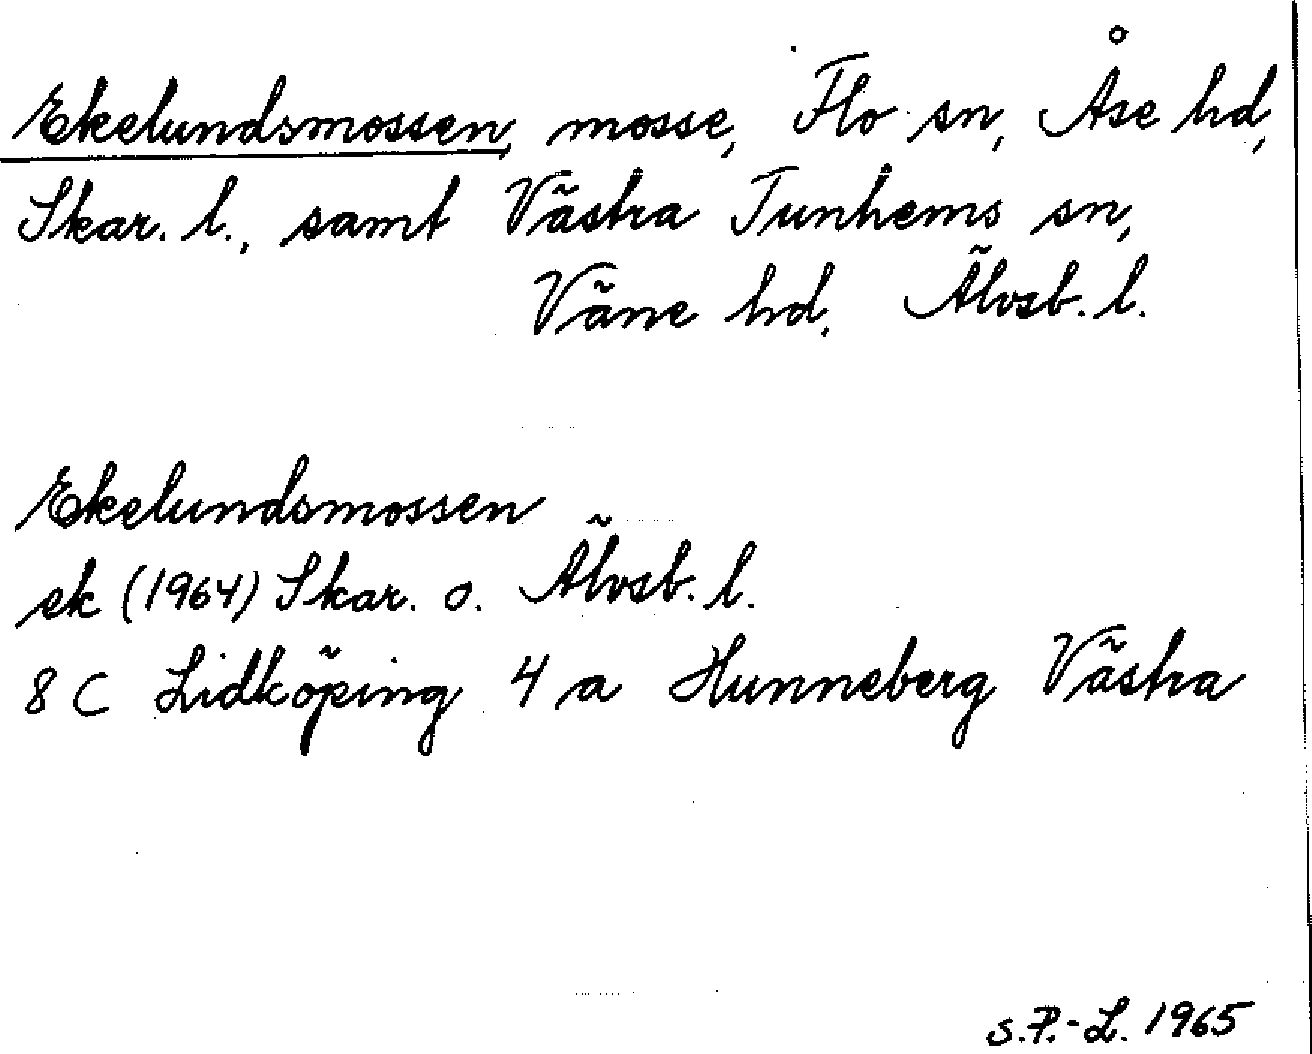 Ekelundsmossen, mosse, Flo sn, Åse hd,
Skar. l., samt Västra Tunhems sn,
Väne hd, Älvsb. l.
Ekelundsmossen
ek (1964) Skar. o. Älvsb. l.
8 C Lidköping 4 a Hunneberg Västra
S.P.-L. 1965